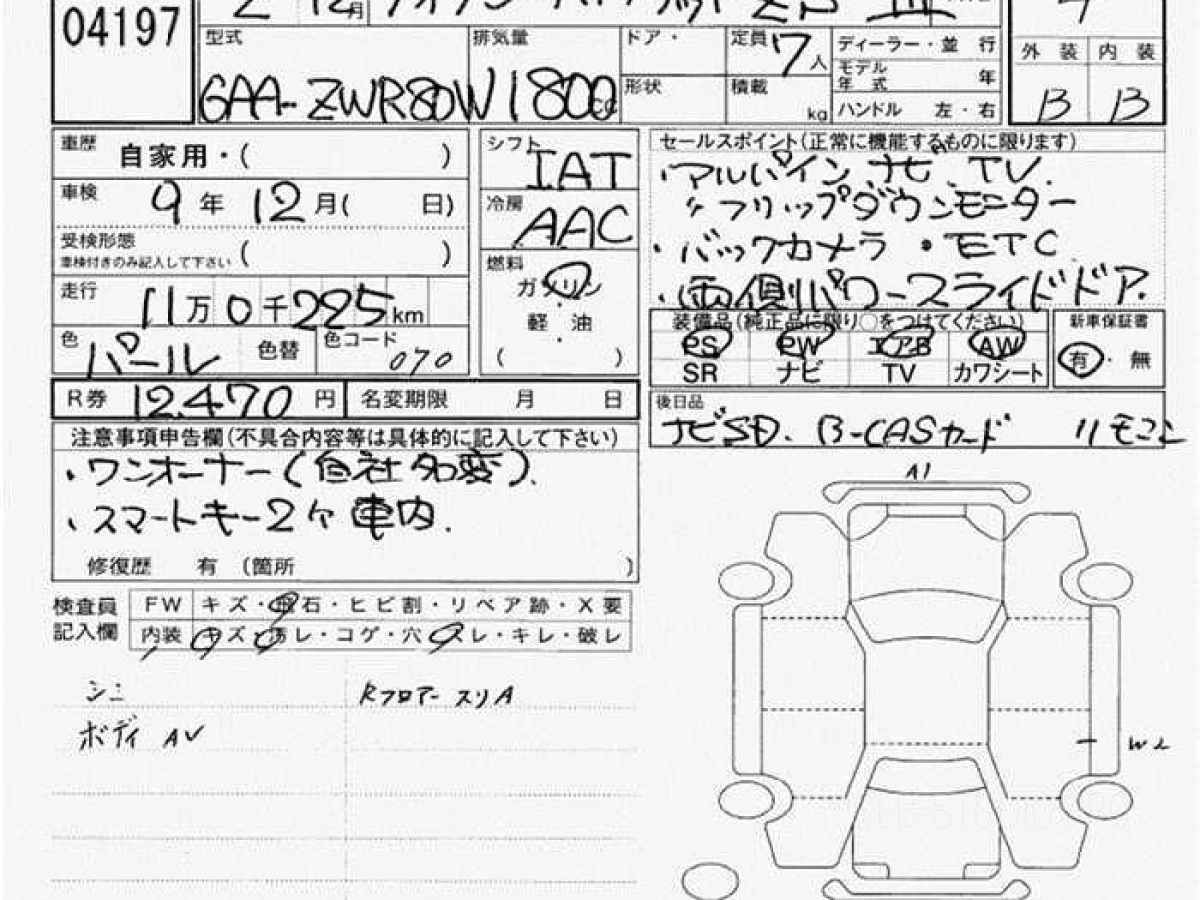 04197
型式 GAA-ZWR80W
排気量 1800 cc
ドア・
形状
定員 7人
積載 kg
ディーラー・並行
モデル年式 年
ハンドル 左・右
外装 内装
B B
車歴 自家用・( )
車検 9年 12月( 日)
受検形態 ( )
車検付きのみ記入して下さい
走行 11万 0千 225km
色 パール 色替 色コード 070
シフト IAT
冷房 AAC
燃料
ガソリン
・
軽油
・
( )
セールスポイント(正常に機能するものに限ります)
・アルパイン ナビ、TV.
〃フリップダウンモニター
・バックカメラ ・ETC
・両側パワースライドドア.
装備品(純正品に限り○をつけてください)
PS PW エアB AW
SR ナビ TV カワシート
新車保証書
有・無
R券 12,470円
名変期限 月 日
後日品
ナビSD. B-CASカード リモコン
注意事項申告欄(不具合内容等は具体的に記入して下さい)
・ワンオーナー(自社名変).
・スマートキー2ケ車内.
修復歴 有 (箇所 )
検査員記入欄
FW キズ・飛石・ヒビ割・リペア跡・X要
内装 キズ・汚レ・コゲ・穴・スレ・キレ・破レ
シミ
Rフロアー スリA
ボディ AV
A1
W2